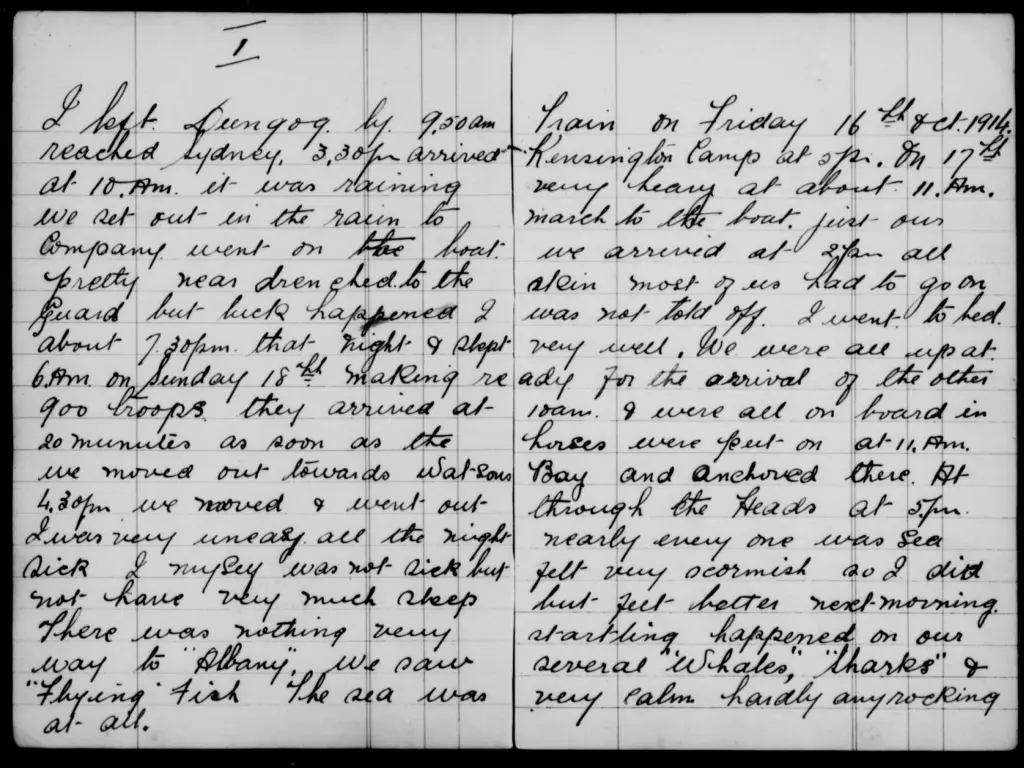 1
I left. Dungog. by. 9.50am Train on Friday 16th Oct. 1914.
reached Sydney, 3,30pm arrived Kensington Camp at 5pm. On 17th
at 10.Am. it was raining very heavy at about 11.Am.
we set out in the rain to march to the boat. just our
Company went on the boat. we arrived at 2pm all
pretty near drenched to the skin most of us had to go on
Guard but luck happened I was not told off. I went to bed.
about 7.30pm. that night & slept very well. We were all up at
6.Am. on Sunday 18th making re ady for the arrival of the other
900 troops they arrived at 10am. & were all on board in
20 munutes as soon as the horses were put on at 11.Am.
we moved out towards Watsons Bay and anchored there. At
4.30pm we moved & went out through the Heads at 5pm.
I was very uneasy all the night nearly every one was Sea
sick I mysey was not sick but felt very scormish so I did
not have very much sleep but felt better next morning.
There was nothing very startling happened on our
way to "Albany". We saw several "Whales", "Sharks" &
"Flying" Fish The sea was very calm hardly any rocking
at all.